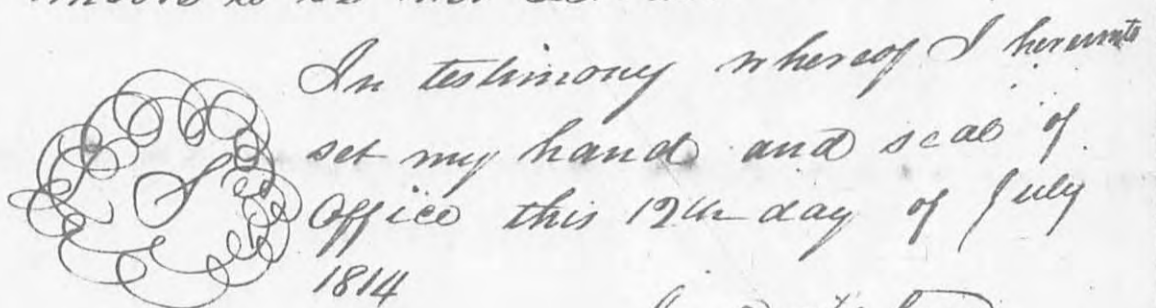 In testimony whereof I hereunto
set my hand and seal of
Office this 12th day of July
1814